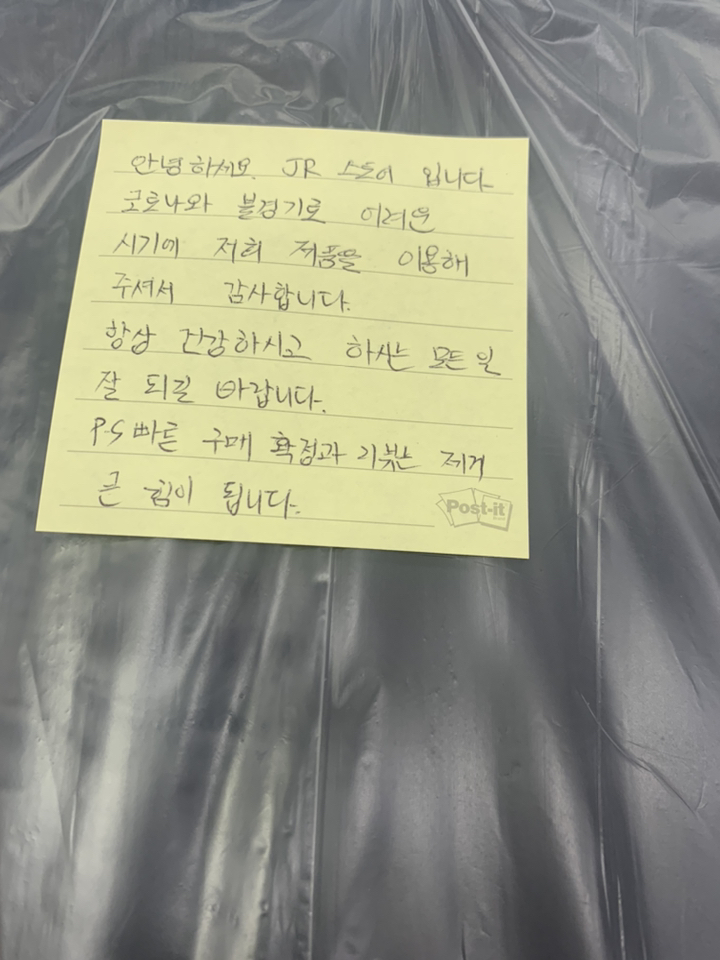 안녕하세요. JR 스토어 입니다
코로나와 불경기로 어려운
시기에 저희 제품을 이용해
주셔서 감사합니다.
항상 건강하시고 하시는 모든 일
잘 되길 바랍니다.
P.S 빠른 구매 확정과 리뷰는 제게
큰 힘이 됩니다.
Post-it